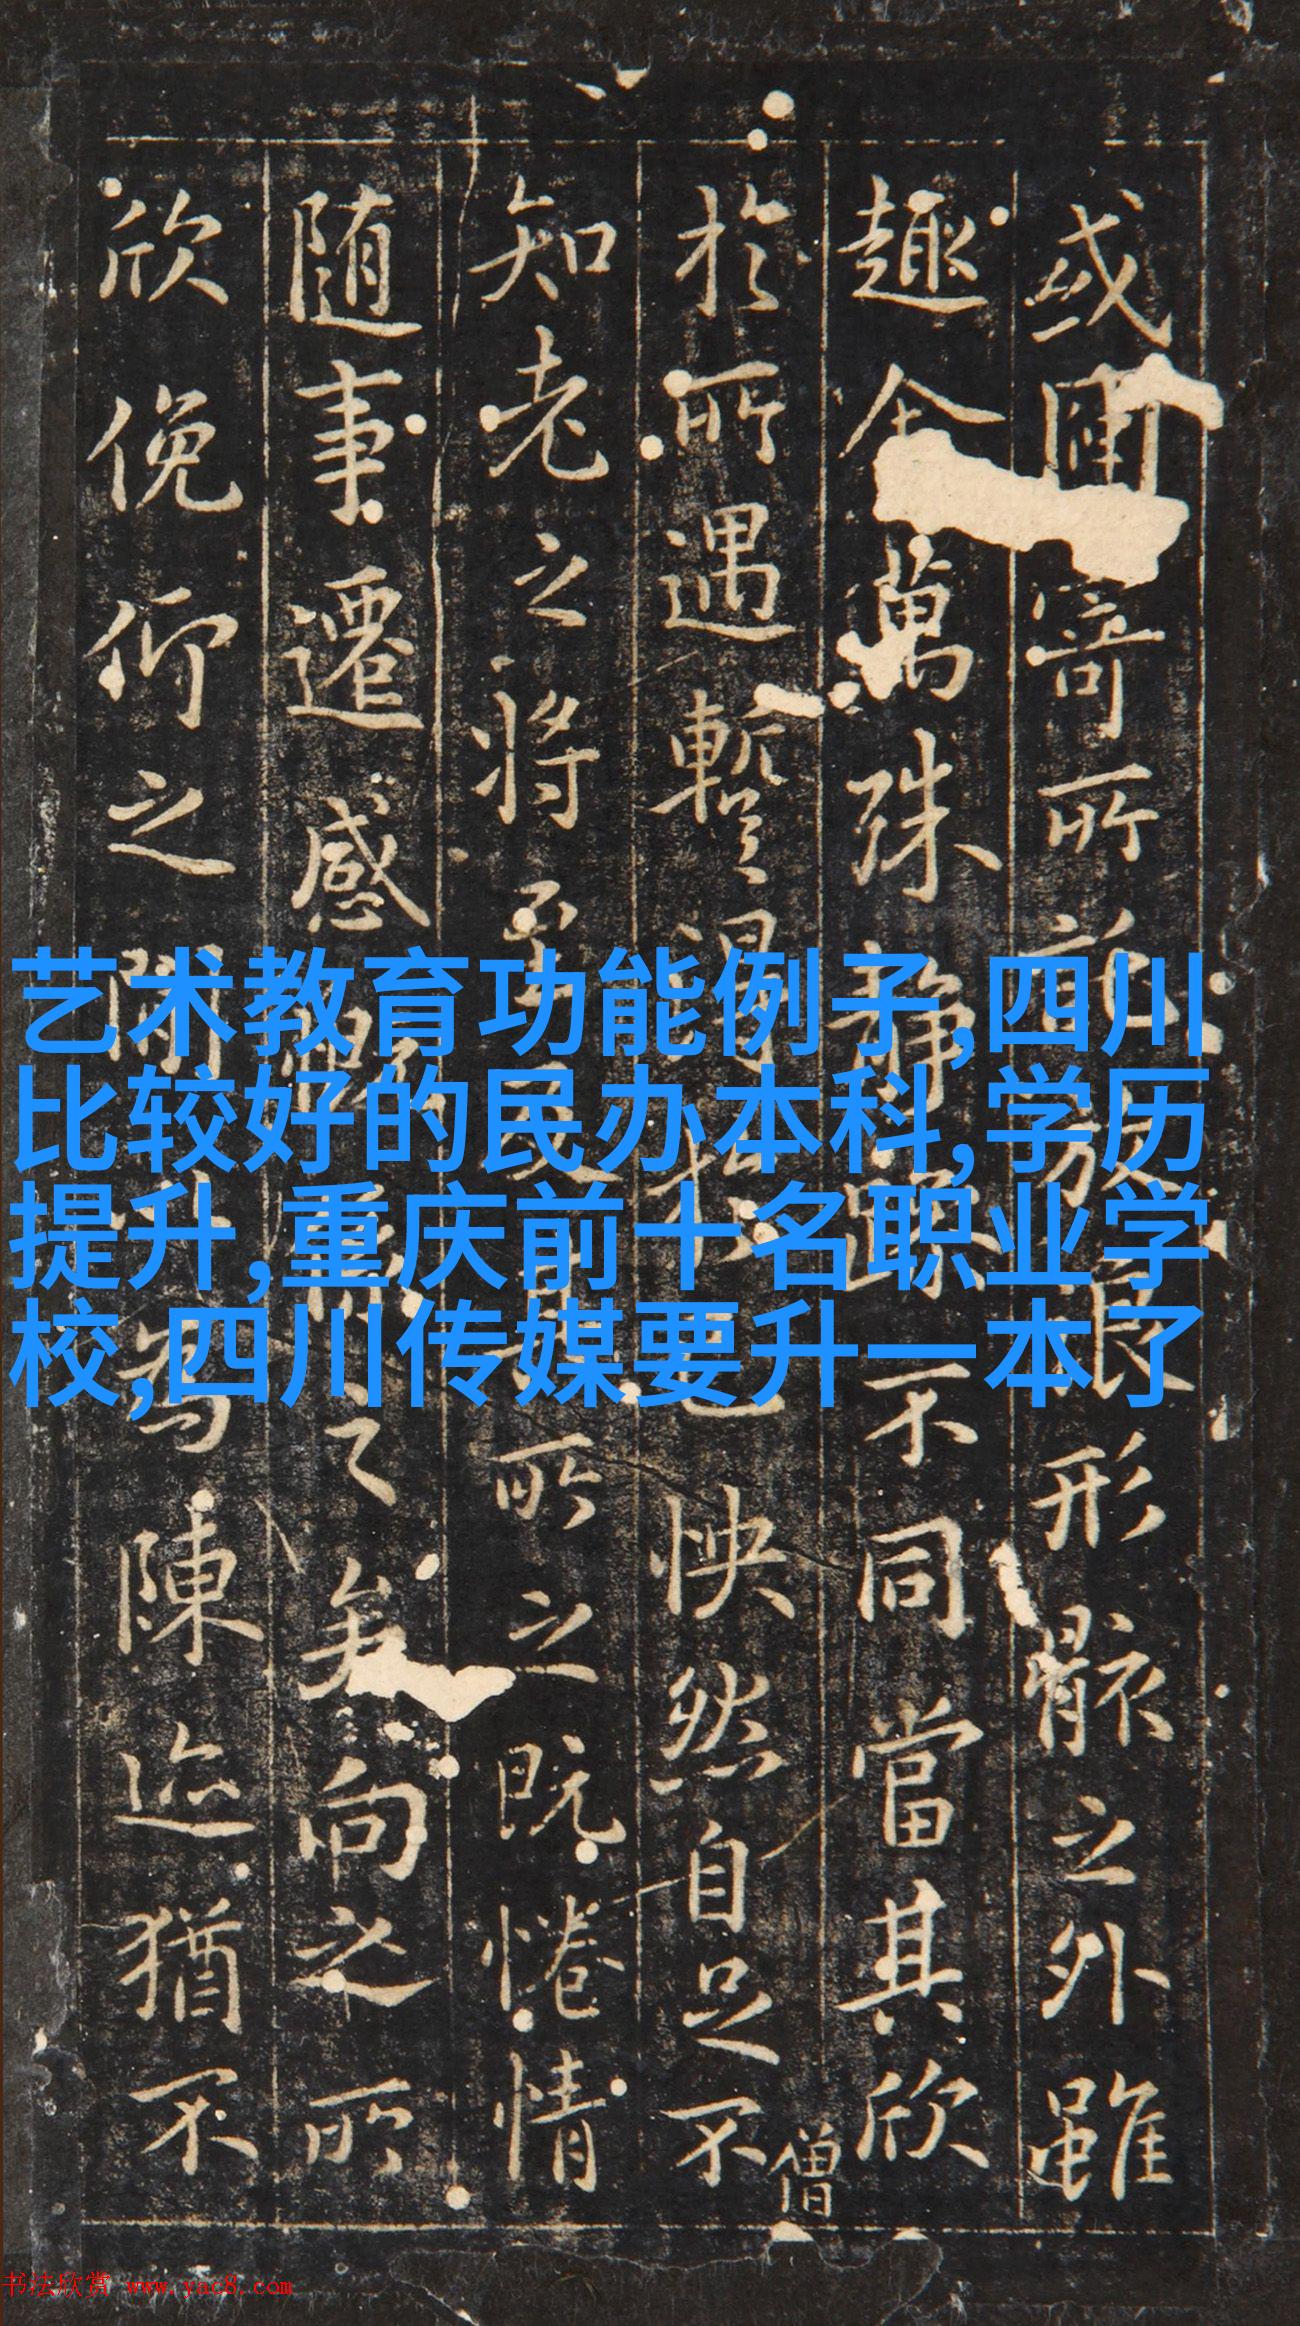 或因寄所託放浪形骸之外雖
趣舍萬殊靜躁不同當其欣
於所遇蹔得於己怏然自足不
僧
知老之將至及其所之既惓情
随事遷感慨係之矣向之所
欣俛仰之閒以為陳迹猶不
艺术教育功能例子,四川
比较好的民办本科,学历
提升,重庆前十名职业学
校,四川传媒要升一本了
书法欣赏 www.yac8.com